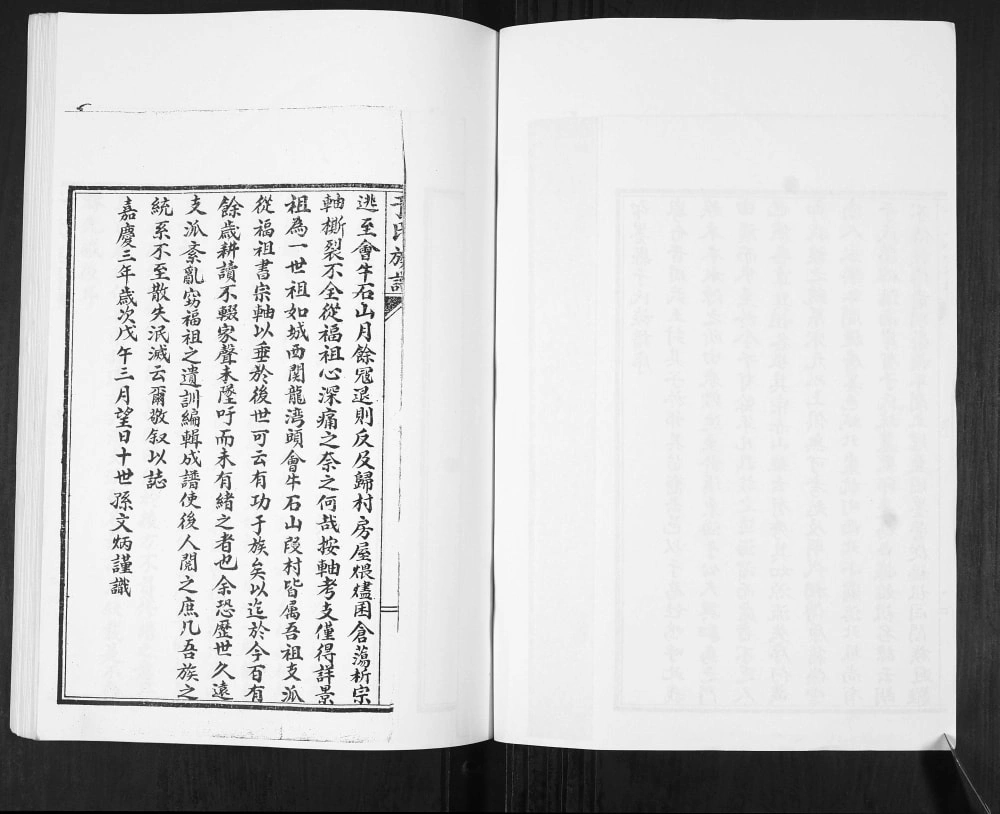 氏族譜
逃至會牛石山月餘寇退則反及歸村房屋煨燼困倉蕩析宗
軸撕裂不全從福祖心深痛之奈之何哉按軸考支僅得詳景
祖為一世祖如城西関龍湾頭會牛石山段村皆属吾祖支派
從福祖書宗軸以垂於後世可云有功于族矣以迄於今百有
餘歲耕讀不輟家聲未墜吁而未有緒之者也余恐歷世久遠
支派紊亂窃福祖之遺訓編輯成譜使後人閱之庶几吾族之
統系不至散失泯滅云爾敬叙以誌
嘉慶三年歲次戊午三月望日十世孫文炳謹識